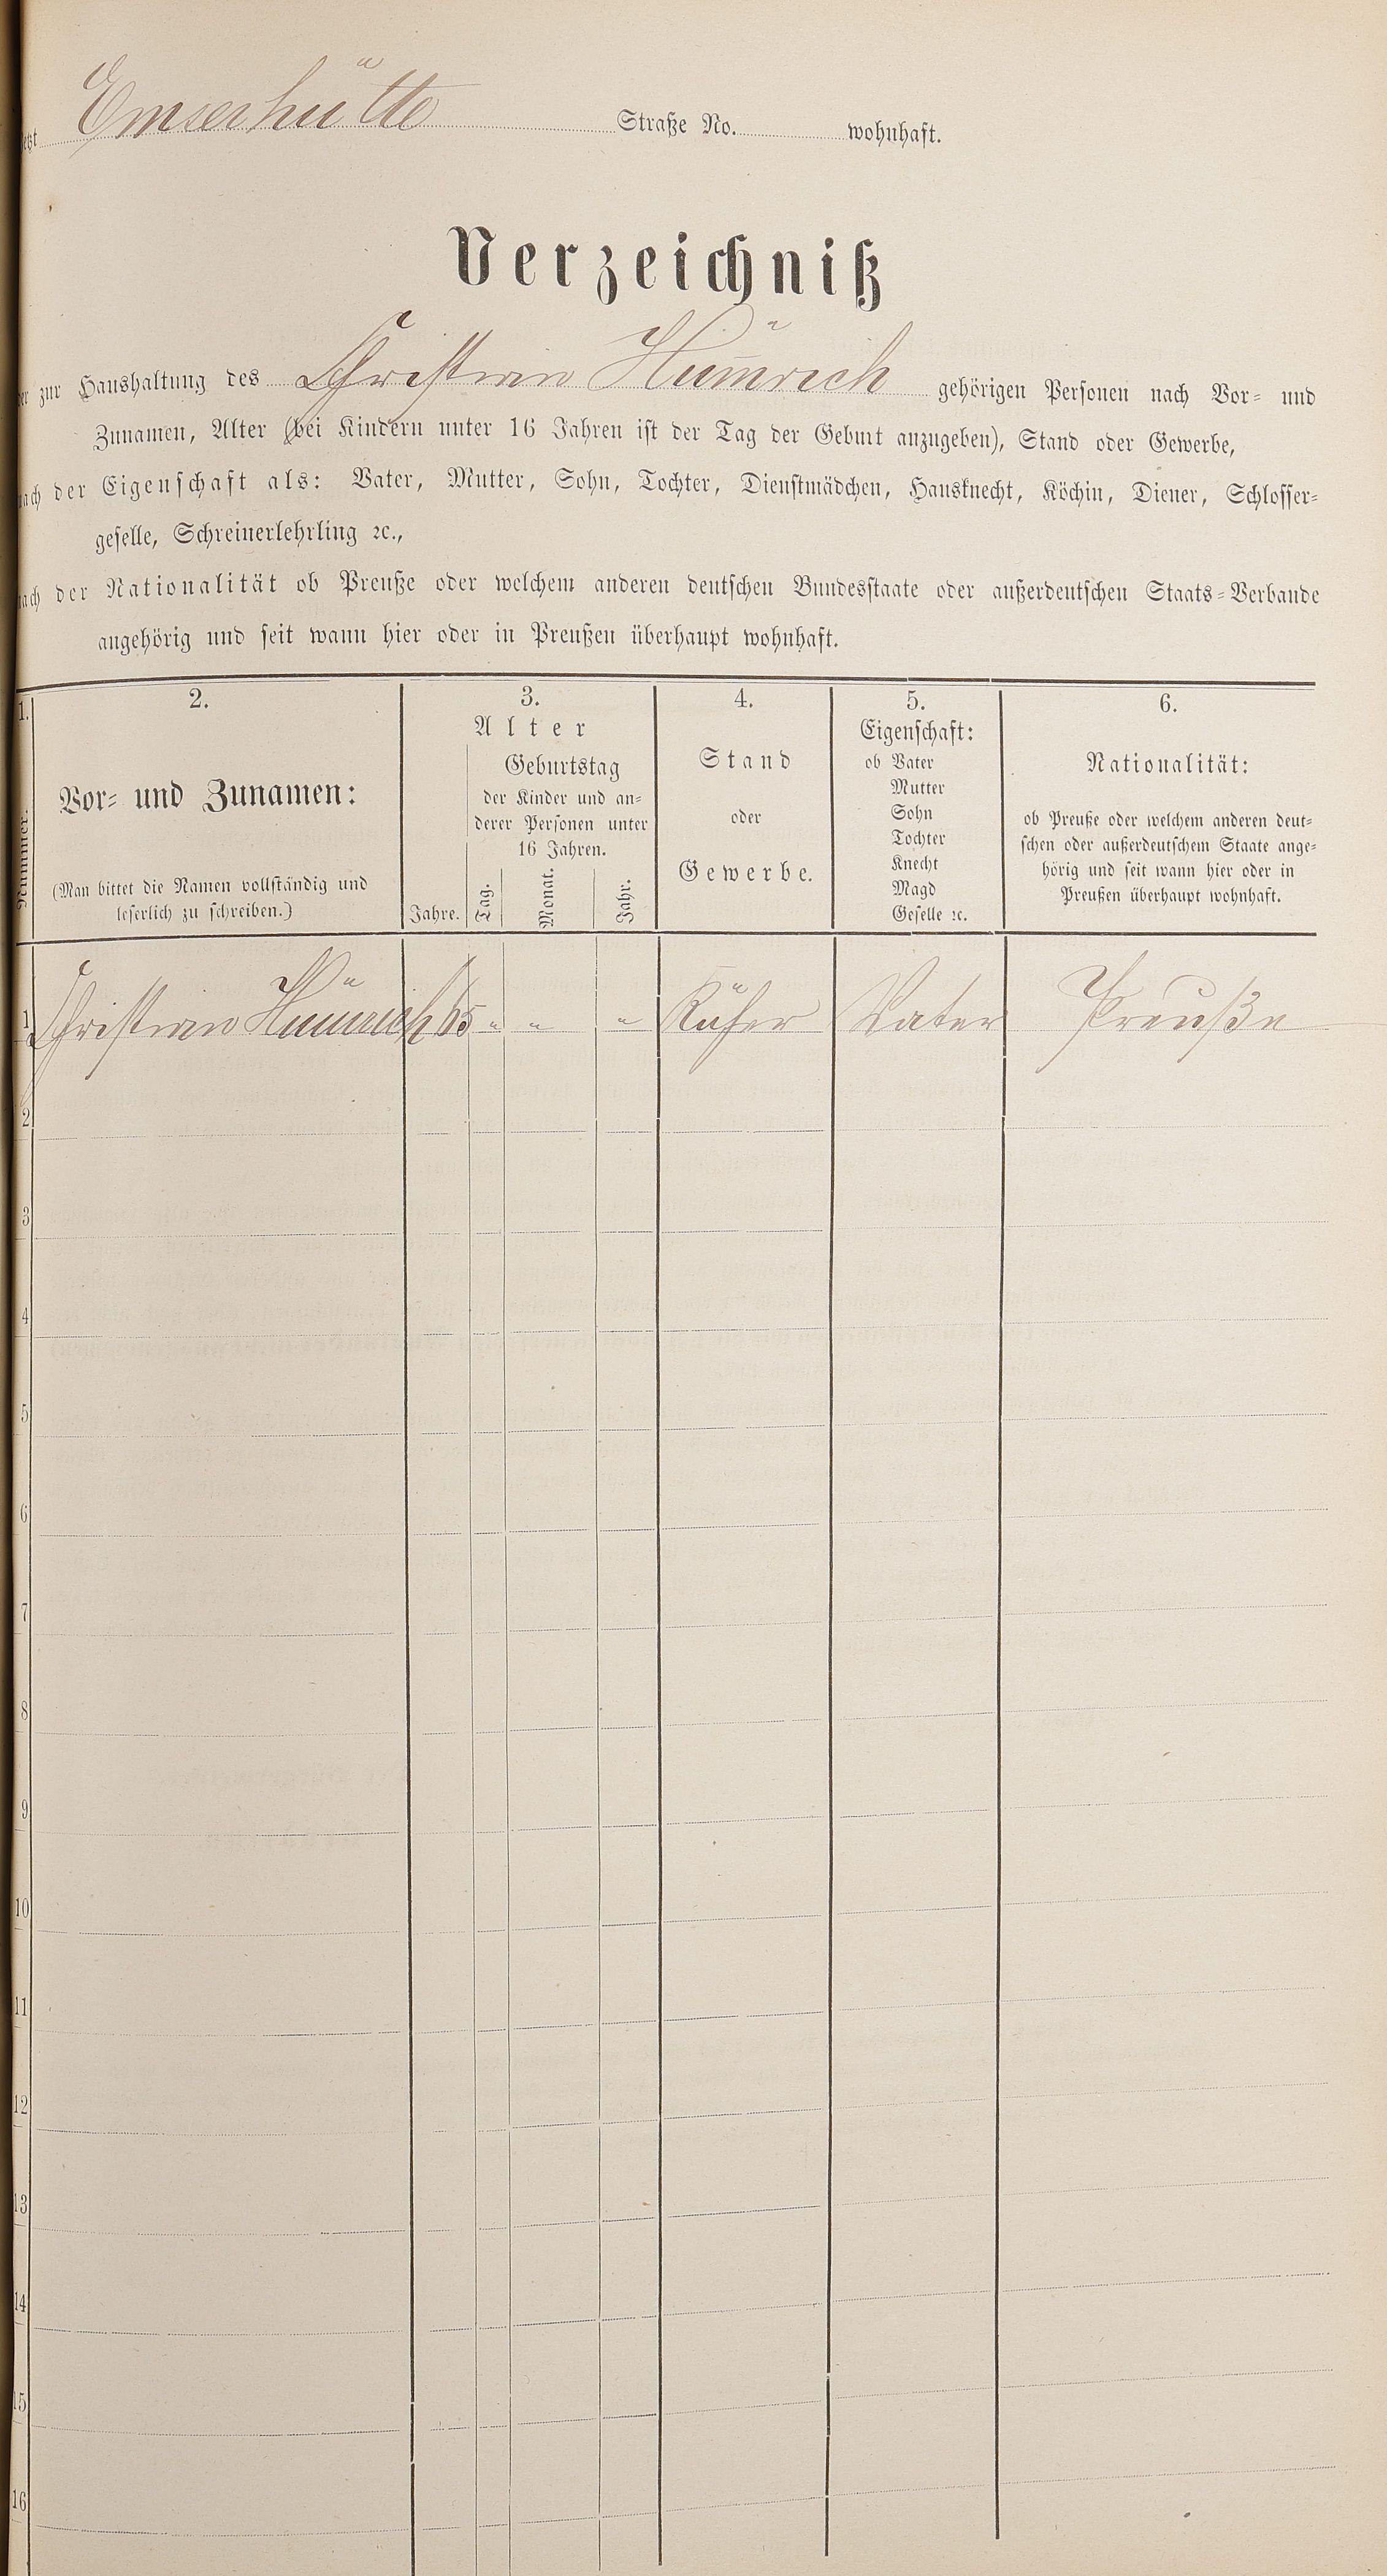 Emserhütte Straße No. wohnhaft.
Verzeichniß
zur Haushaltung des Christian Hümrich gehörigen Personen nach Vor- und
Zunamen, Alter (bei Kindern unter 16 Jahren ist der Tag der Geburt anzugeben), Stand oder Gewerbe,
nach der Eigenschaft als: Vater, Mutter, Sohn, Tochter, Dienstmädchen, Hausknecht, Köchin, Diener, Schlosser-
geselle, Schreinerlehrling ꝛc.,
nach der Nationalität ob Preuße oder welchem anderen deutschen Bundesstaate oder außerdeutschen Staats-Verbande
angehörig und seit wann hier oder in Preußen überhaupt wohnhaft.
1.
Nummer.
2.
Vor- und Zunamen:
(Man bittet die Namen vollständig und
leserlich zu schreiben.)
3.
Alter
Geburtstag
der Kinder und an-
derer Personen unter
16 Jahren.
Jahre.
Tag.
Monat.
Jahr.
4.
Stand
oder
Gewerbe.
5.
Eigenschaft:
ob Vater
Mutter
Sohn
Tochter
Knecht
Magd
Geselle ꝛc.
6.
Nationalität:
ob Preuße oder welchem anderen deut-
schen oder außerdeutschem Staate ange-
hörig und seit wann hier oder in
Preußen überhaupt wohnhaft.
1 Christian Hümrich 65 " " " Küfer Vater Preuße
2
3
4
5
6
7
8
9
10
11
12
13
14
15
16